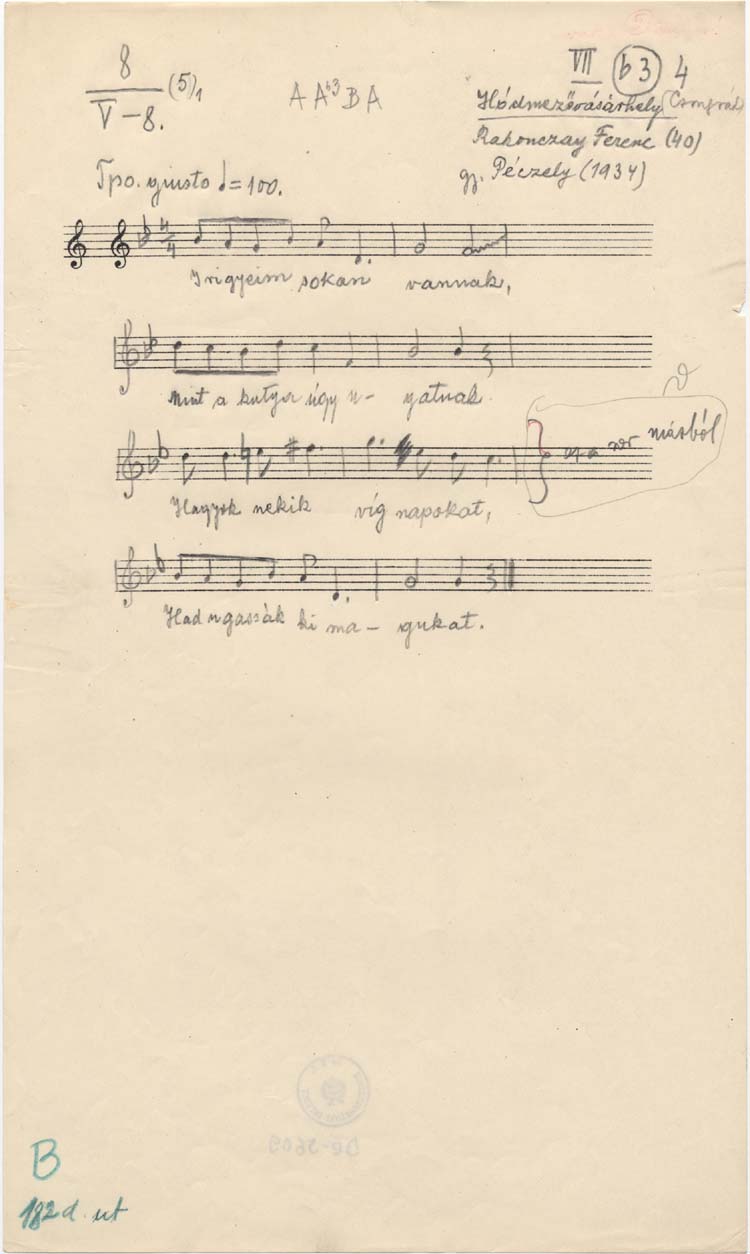 8
V – 8. (5)1
A A♭3 B A
VII ♭3 4
Hódmezővásárhely (Csongrád)
Rakonczay Ferenc (40)
gy. Péczely (1934)
Tpo. giusto ♩ = 100.
4
4
Irigyeim sokan vannak,
Mint a kutya úgy u- gatnak.
másból
Hagyok nekik víg napokat,
Had ugassák ki ma – gukat.
B
182 d. ut